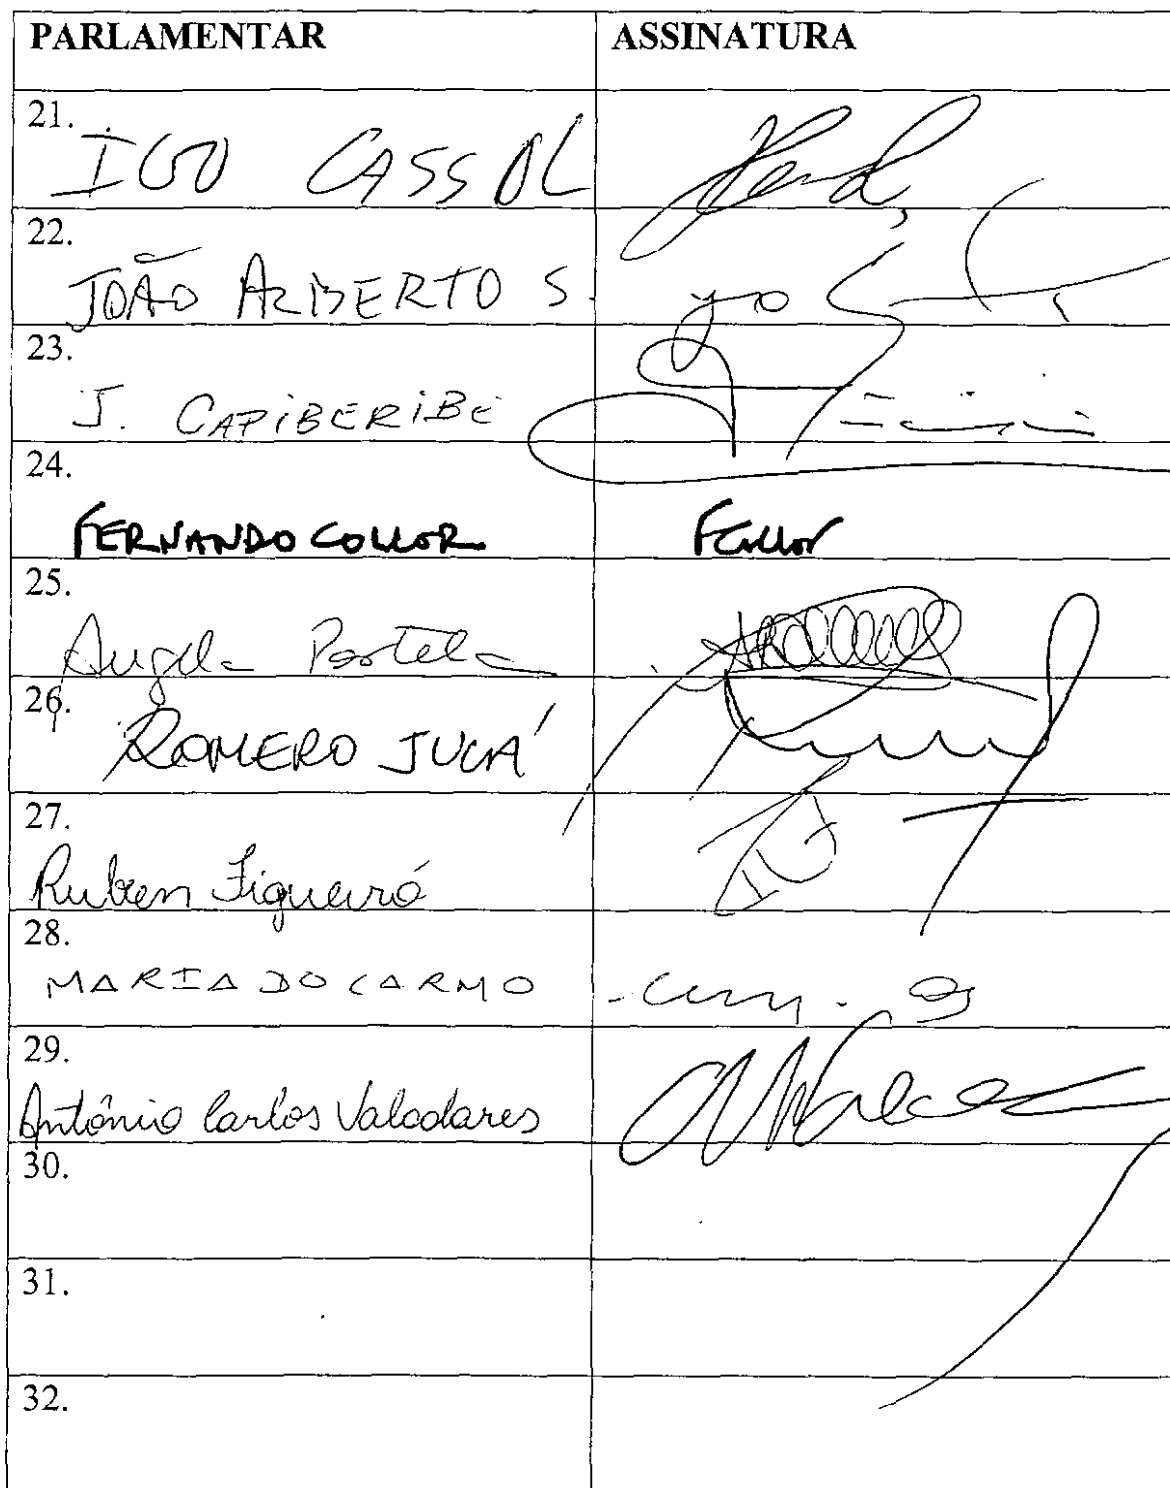 PARLAMENTAR ASSINATURA
21. IGO CASSOL
22. JOÃO ALBERTO S.
23. J. CAPIBERIBE
24. FERNANDO COLLOR FCollor
25. Angela Portela
26. ROMERO JUCÁ
27. Ruben Figueiró
28. MARIA DO CARMO
29. Antônio Carlos Valadares
30.
31.
32.